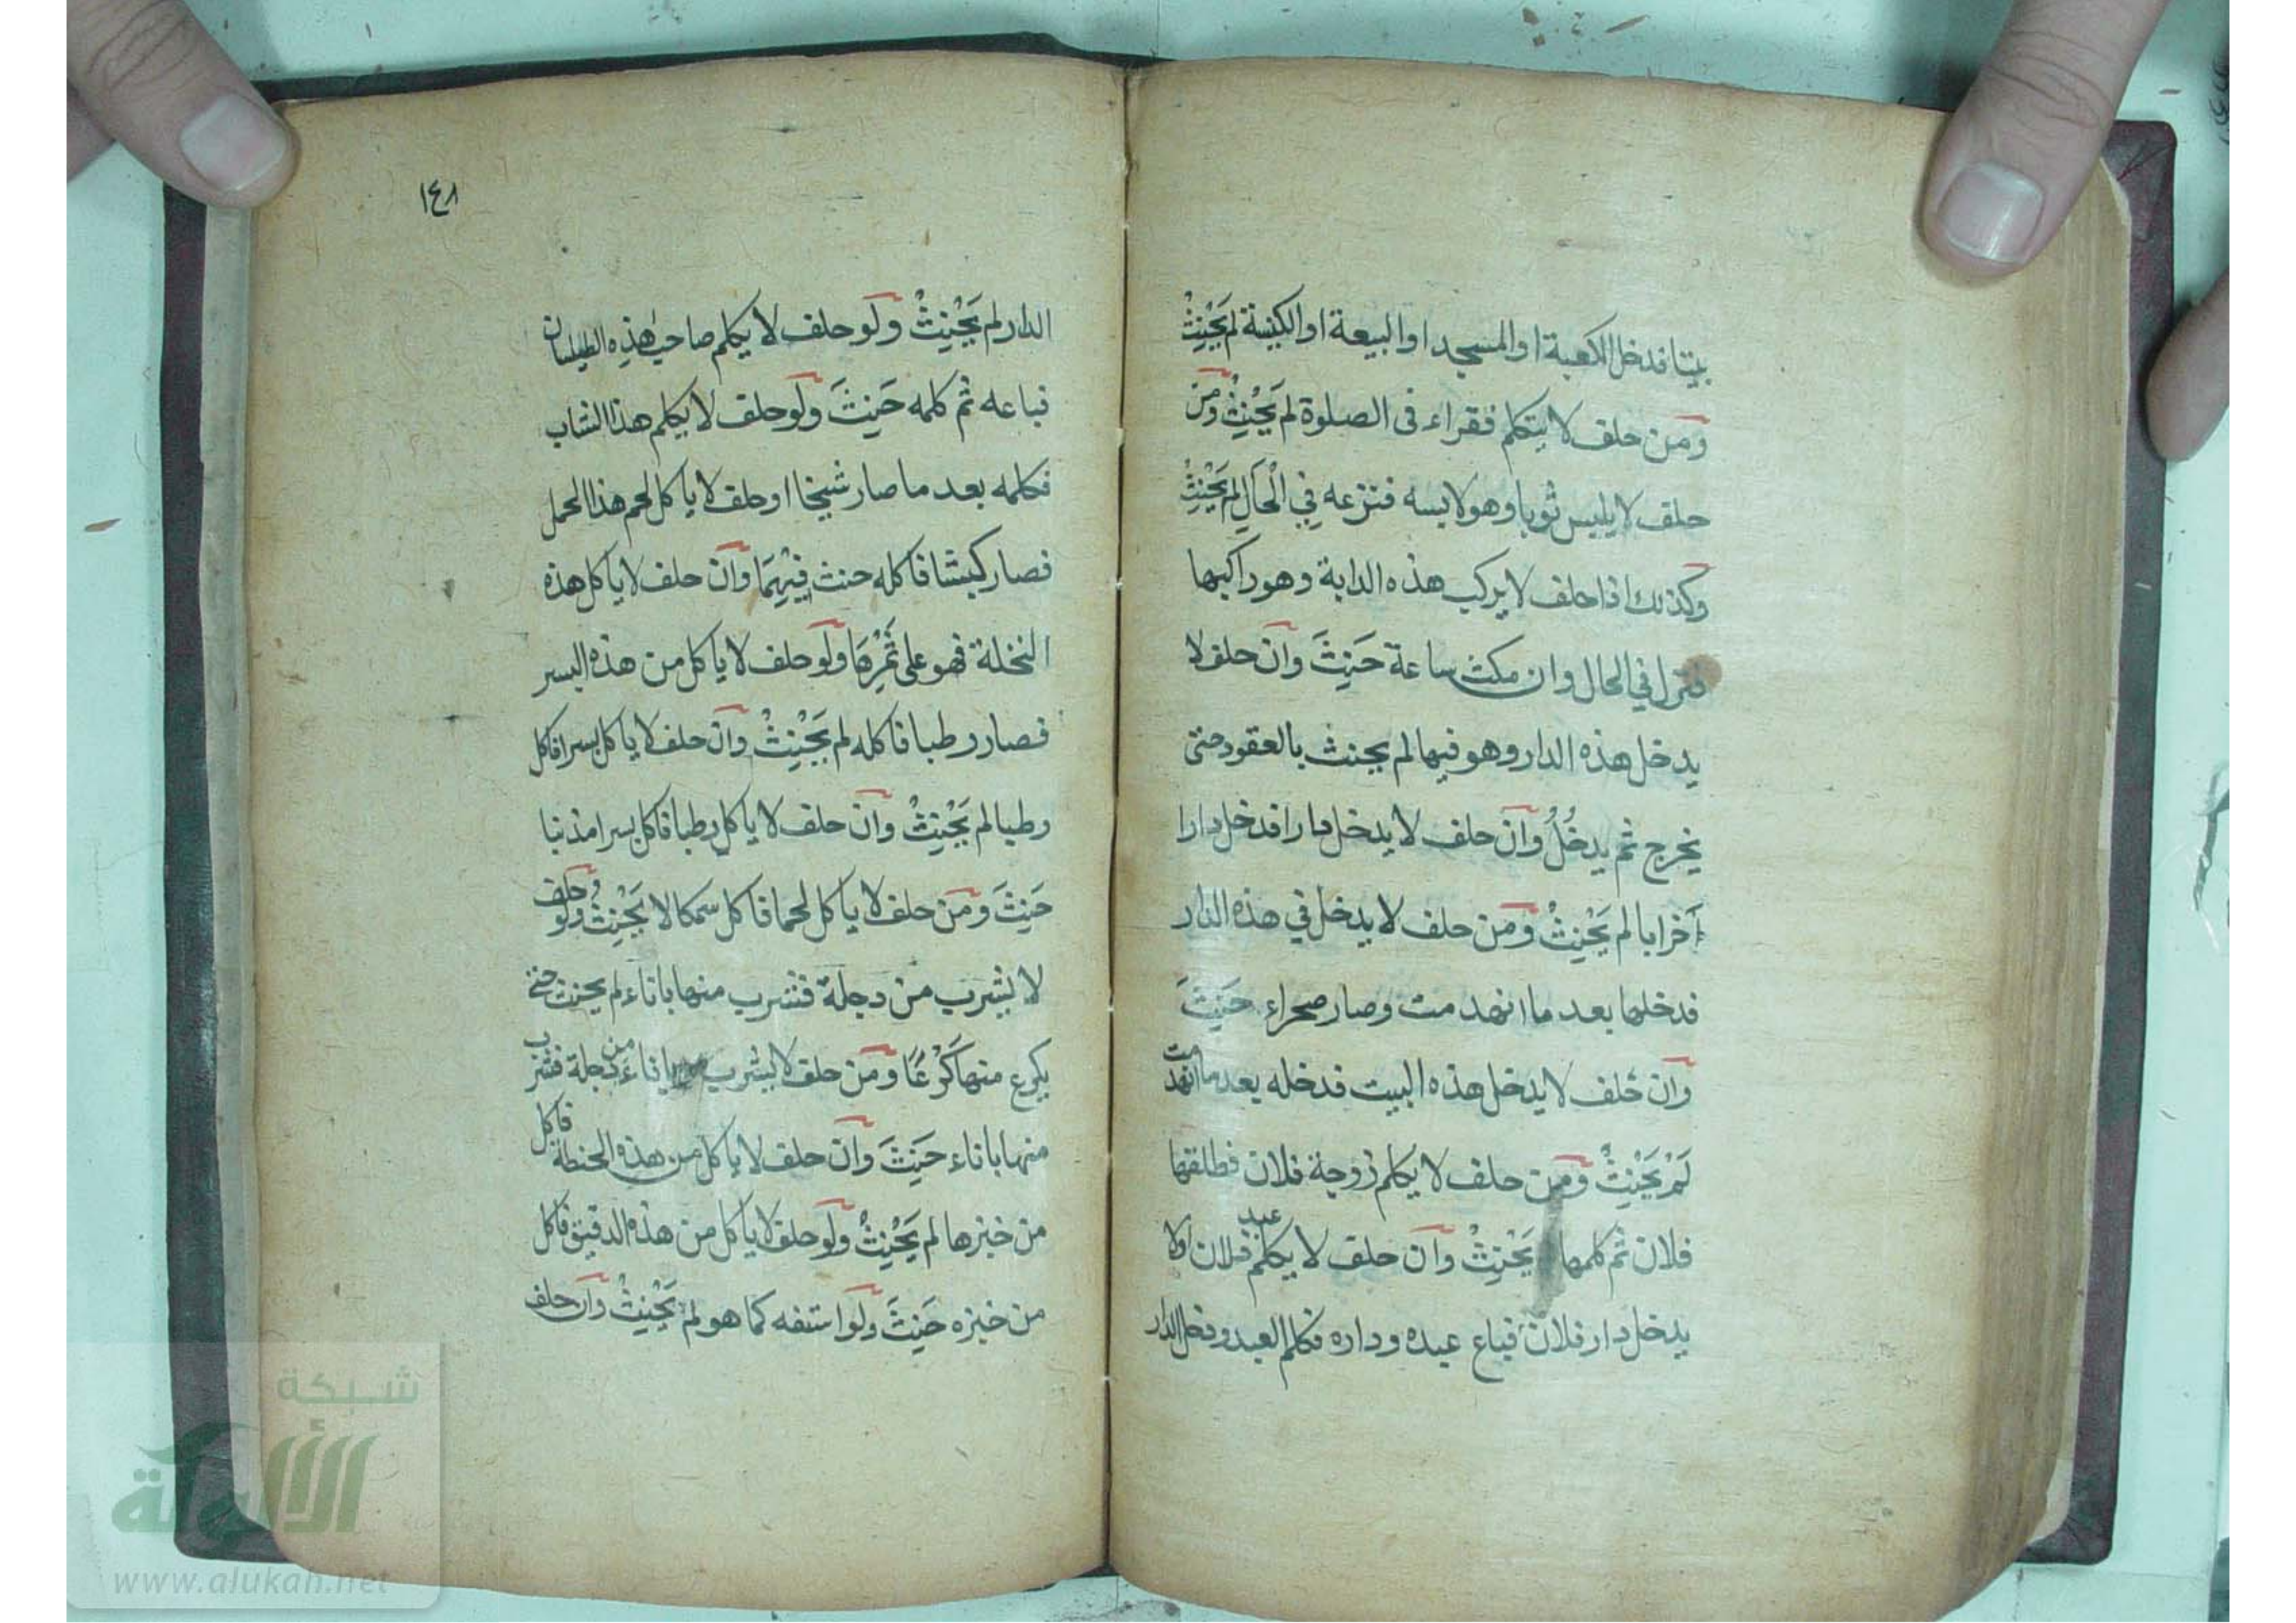 بيتا فدخل الكعبة او المسجد او البيعة او الكنيسة لم يَحْنِثْ
ومن حلف لا يتكلم فقراء فى الصلوة لم يَحْنِثْ ومن
حلف لا يلبس ثوبا وهو لابسه فنزعه فِي الْحَالِ لم يَحْنِثْ
وكذلك اذا حلف لا يركب هذه الدابة وهو راكبها
فنزل في الحال وان مكث ساعة حَنِثَ وان حلف لا
يدخل هذه الدار وهو فيها لم يحنث بالعقود حتى
يخرج ثم يدخُلُ وان حلف لا يدخل دارا فدخل دارا
خرابا لم يَحْنِثْ ومن حلف لا يدخل في هذه الدار
فدخلها بعد ما انهدمت وصار صحراء حَنِثَ
وان حَلف لا يدخل هذه البيت فدخله بعد ما انهدمت
لَمْ يَحْنِثْ ومن حلف لا يكلم زوجة فلان فطلقها
فلان ثم كلمها يَحْنِثْ وان حلف لا يكلم عبد فلان اولا
يدخل دار فلان فباع عبده وداره فكلم العبد ودخل الدار
١٤٨
الدار لم يَحْنِثْ ولو حلف لا يكلم صاحب هذِه الطيلسان
فباعه ثم كلمه حَنِثَ ولو حلف لا يكلم هذا الشاب
فكلمه بعد ما صار شيخا او حلف لا ياكل لحم هذا الحمل
فصار كبشا فاكله حنث فِيْهِمَا وان حلف لا ياكل هذه
النخلة فهو على ثَمْرِهَا ولو حلف لا ياكل من هذه البسر
فصار رطبا فاكله لم يَحْنِثْ وان حلف لا ياكل بسرا فاكل
رطبا لم يَحْنِثْ وان حلف لا ياكل رطبا فاكل بسرا مذنبا
حَنِثَ ومن حلف لا ياكل لحما فاكل سمكا لا يَحْنِثْ ولو حلف
لا يشرب من دجلة فشرب منها باناء لم يحنث حتى
يكرع منها كَرْعًا ومن حلف لا يشرب باناء من دجلة فشرب
منها باناء حَنِثَ وان حلف لا ياكل من هذه الحنطة فاكل
من خبزها لم يَحْنِثْ ولو حلف لا ياكل من هذه الدقيق فاكل
من خبزه حَنِثَ ولو استفه كما هو لم يَحْنِثْ وان حلف
شبكة
الألوكة
www.alukah.net